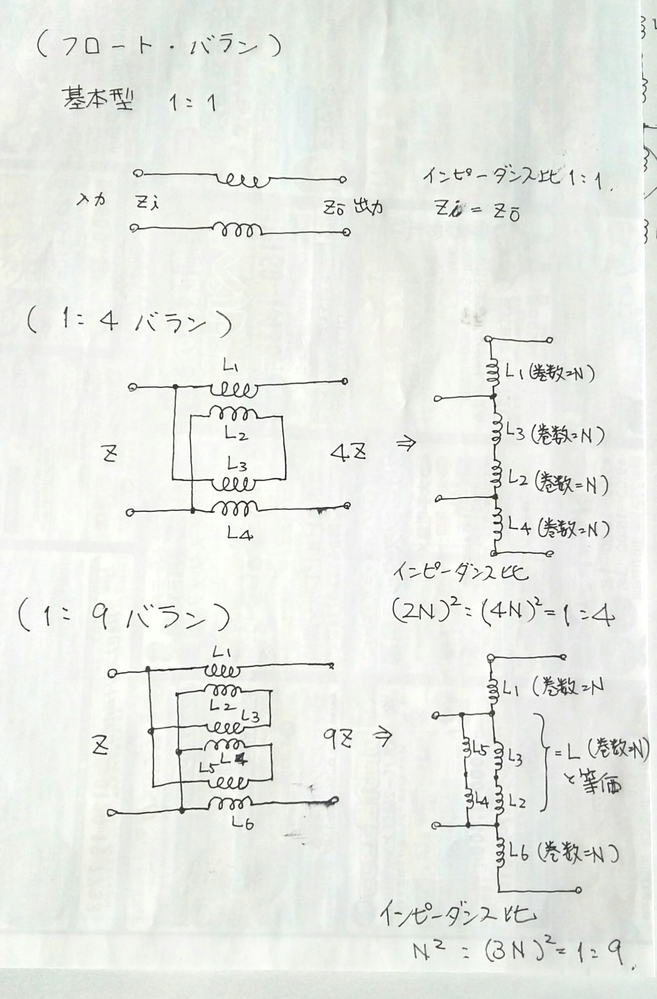 (フロート・バラン)
基本型 1:1
インピーダンス比1:1.
入力 Zi Zo 出力 Zi = Zo
(1:4 バラン)
L1
L2
L3
L4
Z 4Z ⇒
L1(巻数=N)
L3(巻数=N)
L2(巻数=N)
L4(巻数=N)
インピーダンス比
(2N)²:(4N)²=1:4
(1:9 バラン)
L1
L2
L3
L4
L5
L6
Z 9Z ⇒
L1 (巻数=N
L5 L3
L4 L2
=L (巻数=N)
と等価
L6 (巻数=N)
インピーダンス比
N² : (3N)²=1:9.